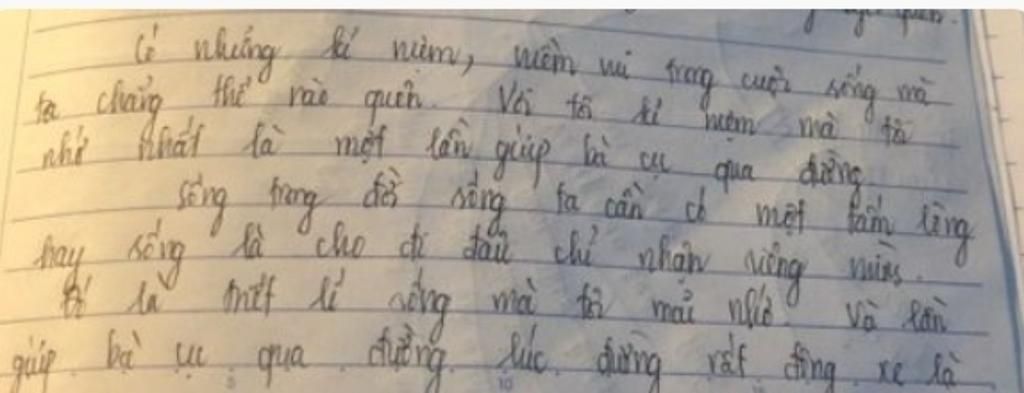 Có những kỉ niệm, niềm vui trong cuộc sống mà
ta chẳng thể nào quên. Với tôi kỉ niệm mà tôi
nhớ nhất là một lần giúp bà cụ qua đường
sống trong đời sống ta cần có một tấm lòng
hay sống là cho đi đâu chỉ nhận riêng mình.
Đó là một lí sống mà tôi mãi nhớ. Và lần
giúp bà cụ qua đường lúc đường rất đông xe là